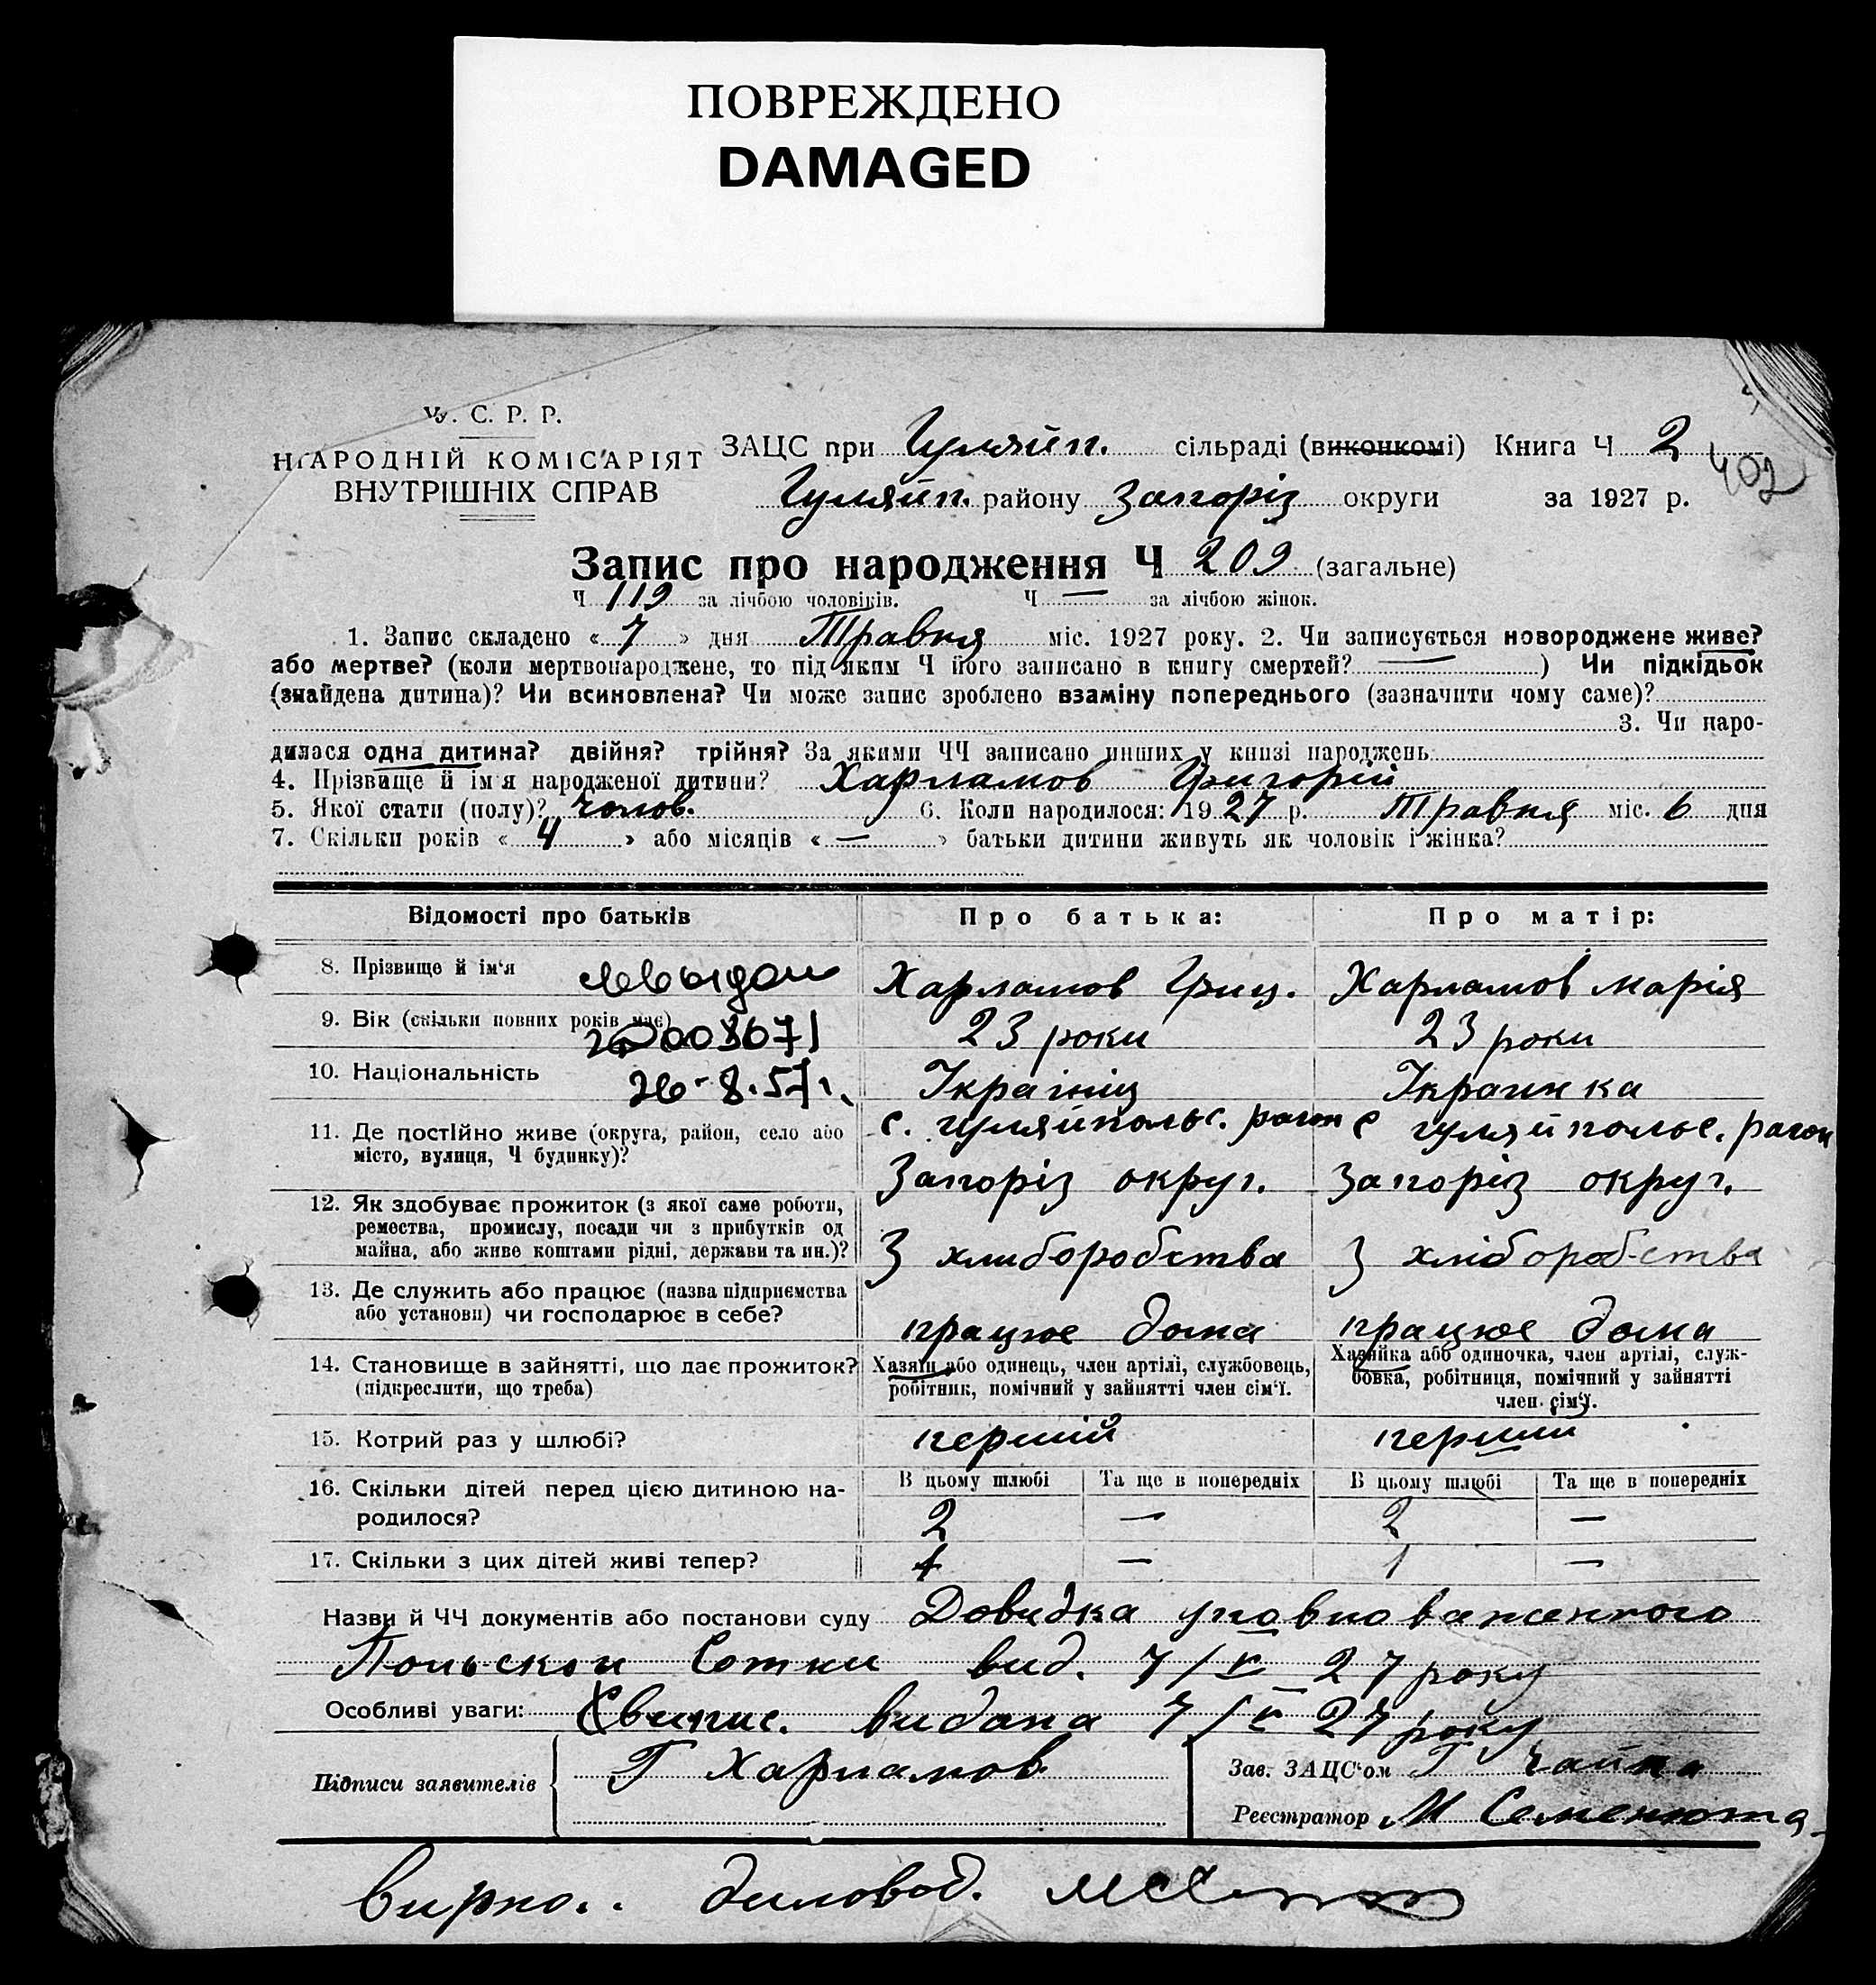 ПОВРЕЖДЕНО
DAMAGED
У. С. Р. Р.
НАРОДНІЙ КОМІСАРІЯТ
ВНУТРІШНІХ СПРАВ
ЗАЦС при Гуляйп. сільраді (виконкомі) Книга Ч 2
402
Гуляйп. району Запоріз округи за 1927 р.
Запис про народження Ч 209 (загальне)
Ч 119 за лічбою чоловіків. Ч — за лічбою жінок.
1. Запис складено « 7 » дня Травня міс. 1927 року. 2. Чи записується новороджене живе?
або мертве? (коли мертвонароджене, то під яким Ч його записано в книгу смертей? — ) Чи підкідьок
(знайдена дитина)? Чи всиновлена? Чи може запис зроблено взаміну попереднього (зазначити чому саме)?
3. Чи наро-
дилася одна дитина? двійня? трійня? За якими ЧЧ записано инших у книзі народжень
4. Прізвище й ім'я народженої дитини? Харламов Григорій
5. Якої стати (полу)? чолов. 6. Коли народилося: 1927 р. Травня міс. 6 дня
7. Скільки років « 4 » або місяців « — » батьки дитини живуть як чоловік і жінка?
Відомості про батьків Про батька: Про матір:
8. Прізвище й ім'я Харламов Гриц. Харламов Марія
9. Вік (скільки повних років має) 23 роки 23 роки
10. Національність 26-8.57г. Україніц Украинка
11. Де постійно живе (округа, район, село або
місто, вулиця, Ч будинку)?
с. Гуляйпольс. район с Гуляйпольс. район
Запоріз округ. Запоріз округ.
12. Як здобуває прожиток (з якої саме роботи,
ремества, промислу, посади чи з прибутків од
майна, або живе коштами рідні, держави та ин.)?
З хлиборобства З хліборобства
13. Де служить або працює (назва підприємства
або установи) чи господарює в себе?
працює дома працює дома
14. Становище в зайнятті, що дає прожиток?
(підкреслити, що треба)
Хазяїн або одинець, член артілі, службовець,
робітник, помічний у зайнятті член сім'ї.
Хазяйка або одиночка, член артілі, служ-
бовка, робітниця, помічний у зайнятті
член сім'ї.
15. Котрий раз у шлюбі? перший перший
16. Скільки дітей перед цією дитиною на-
родилося?
В цьому шлюбі Та ще в попередніх В цьому шлюбі Та ще в попередніх
2 — 2 —
17. Скільки з цих дітей живі тепер? 1 — 1 —
Назви й ЧЧ документів або постанови суду Довидка уповноваженного
Польской Сотни вид. 7/V 27 року
Особливі уваги: видана 7/V 27 року
Підписи заявителів Г Харламов
Зав. ЗАЦС'ом Г
Реєстратор М Семенюта
вирно.. диловод.